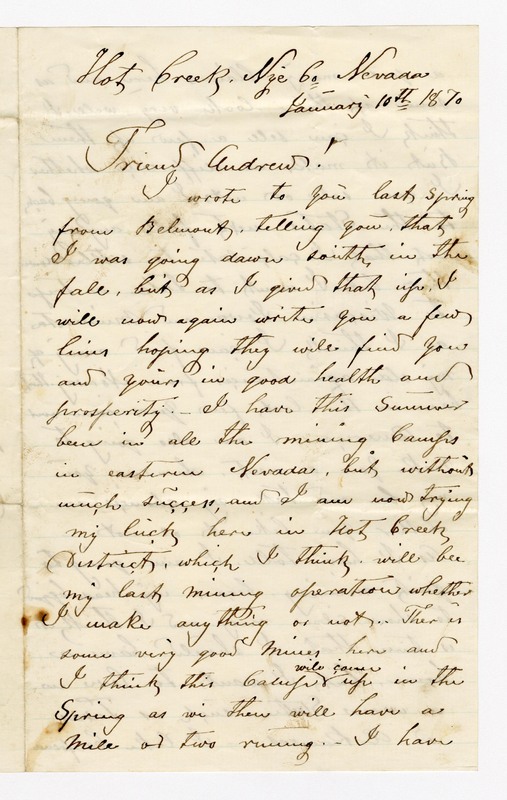 Hot Creek, Nye Co Nevada
January 10th 1870
Friend Andrew!
I wrote to you last Spring
from Belmont, telling you, that
I was going down south, in the
fall, but as I gived that up, I
will now again write you a few
lines hoping they will find you
and yours in good health and
prosperity. - I have this Summer
been in all the mining Camps
in eastern Nevada, but without
much success, and I am now trying
my luck here in Hot Creek
District, which I think will bee
my last mining operation whether
I make anything or not.. Ther is
some very good mines here and
will come
I think this Camp up in the
Spring as wi then will have a
Mile or two runing. - I have